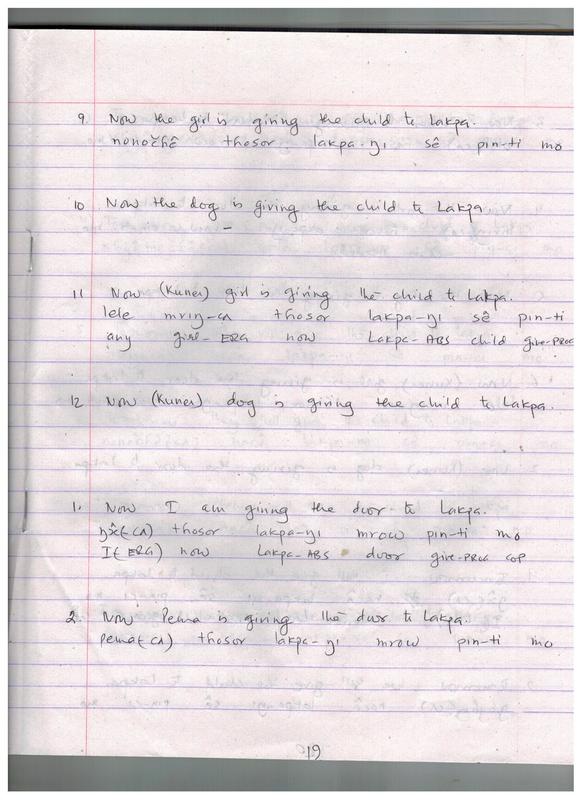 9. Now the girl is giving the child to Lakpa.
nonočhê thosor lakpa-ŋı sê pin-ti mo
10 Now the dog is giving the child to Lakpa.
11 Now (Kunes) girl is giving the child to Lakpa.
lele mrıŋ-cʌ thosor lakpa-ŋı sê pin-ti
any girl-ERG now Lakpa-ABS child give-PROG
12 Now (Kunes) dog is giving the child to Lakpa.
1. Now I am giving the door to Lakpa.
(-cʌ) thosor lakpa-ŋı mrow pin-ti mo
I(-ERG) now Lakpa-ABS door give-PROG COP
2. Now Pema is giving the door to Lakpa.
pema(-cʌ) thosor lakpa-ŋı mrow pin-ti mo
19